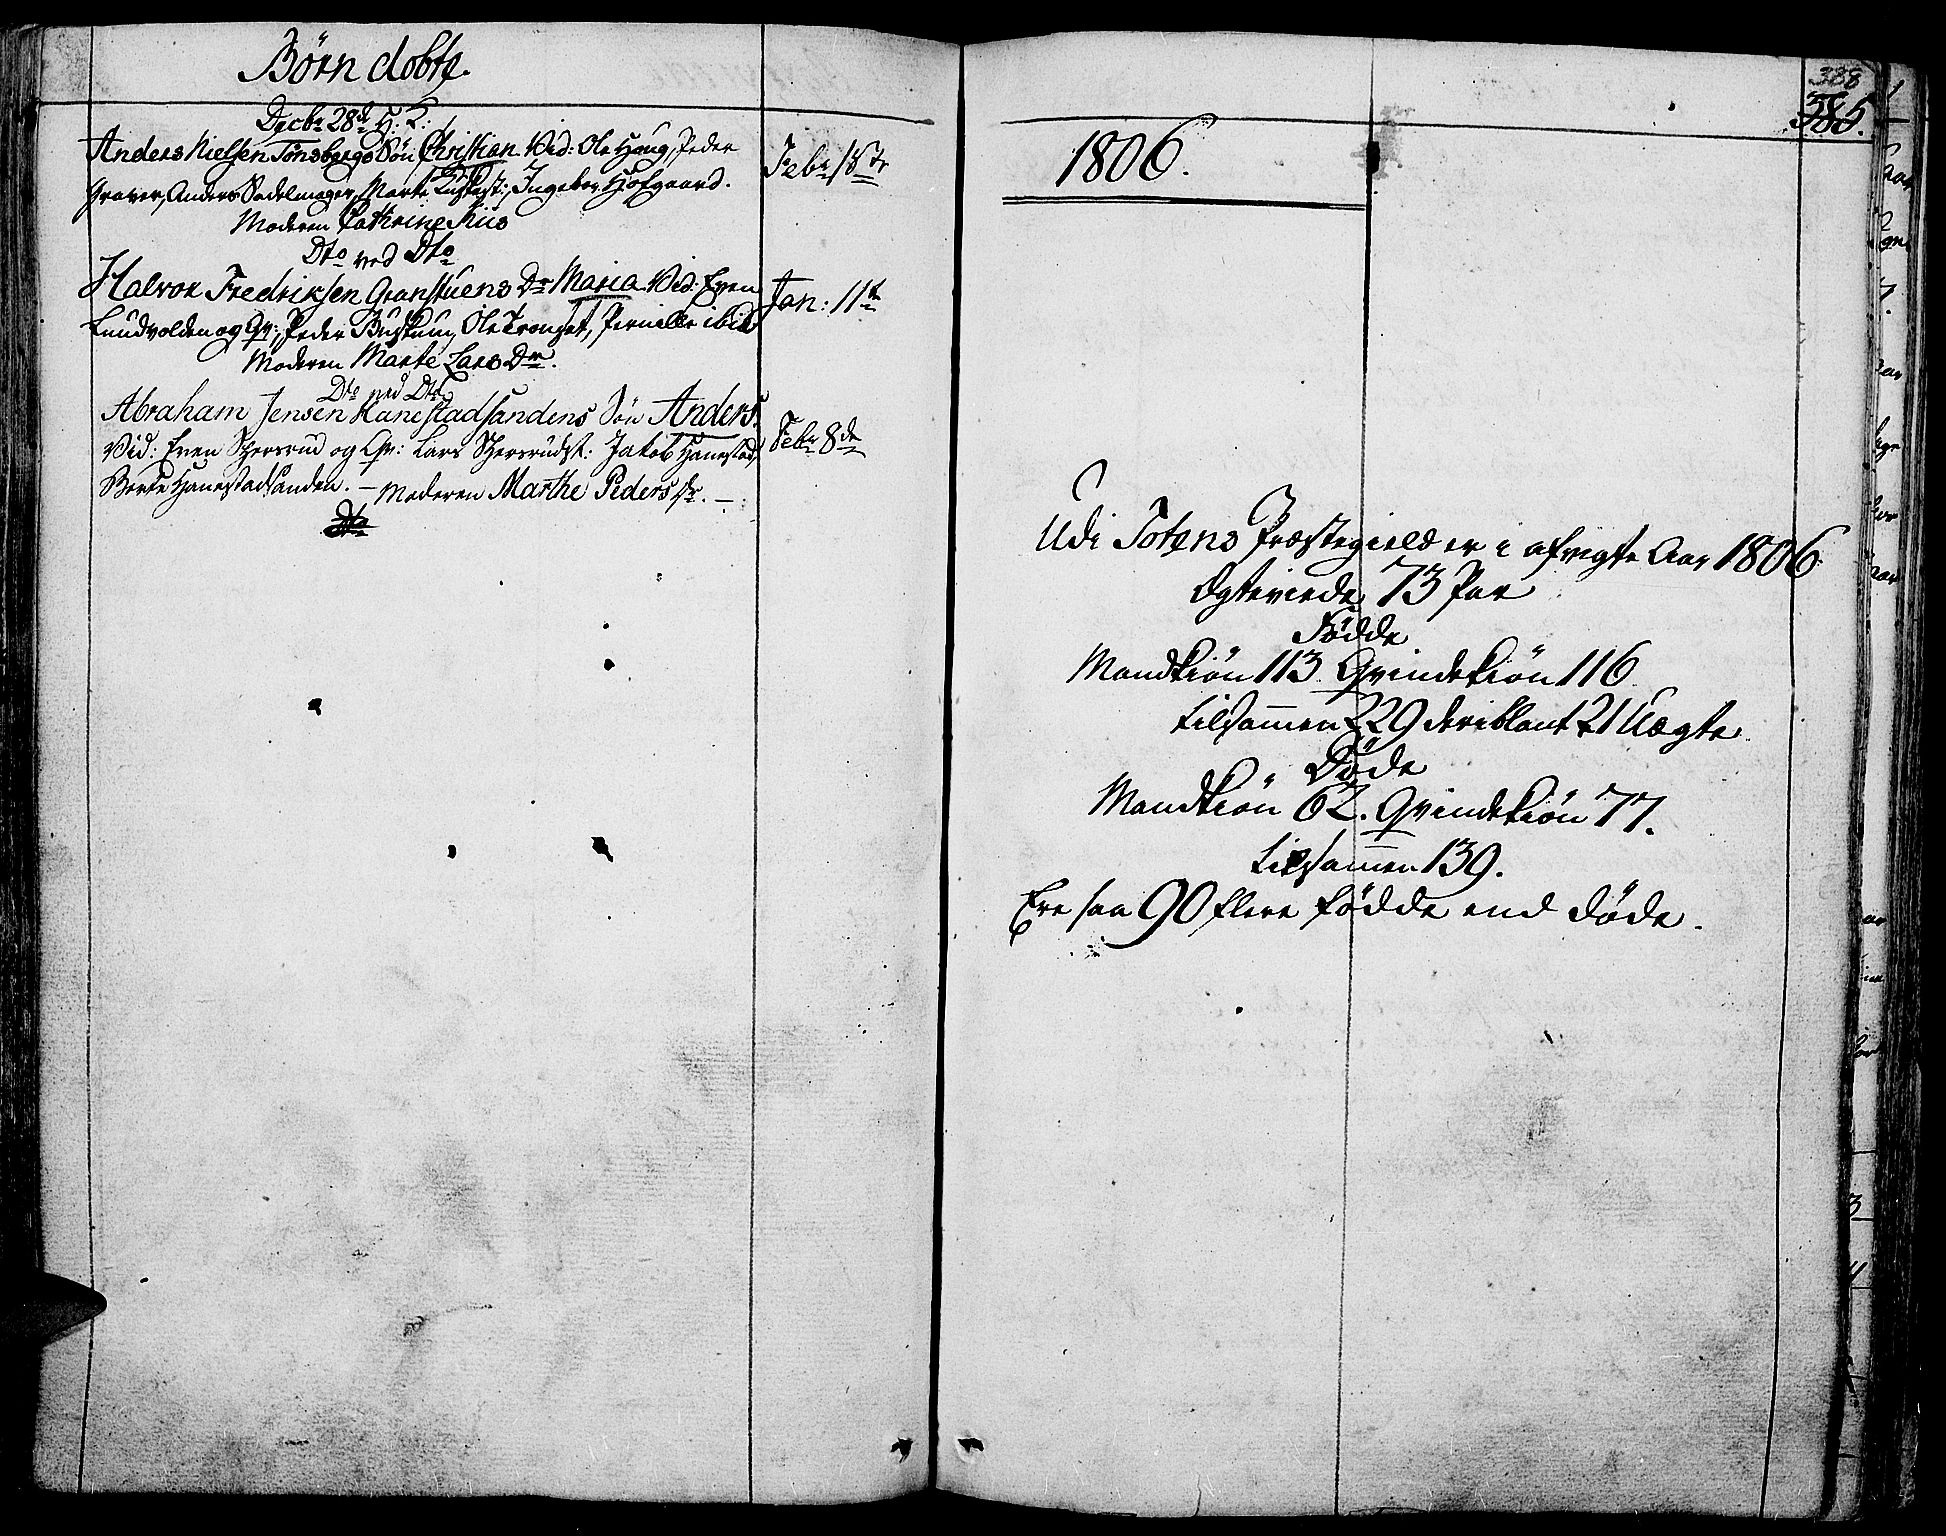 Børn dobte.
Decbr 28de H: K:
Anders Nielsen Tønsbergs Søn Christian Vid: Ole Haug, Peder
Graver, Anders Sadelmager, Marte, Ingebor Hofgaard.
Moderen Cathrine Kiis
Febr 15de
Dto ved Dto
Halvor Fredriksen Granstuens Dr Maria Vid: Even
Lundvolden og Qv:, Peder, Ole, Pernille ibid
Moderen Marte Lars Dr.
Jan: 11te
Dto ved Dto
Abraham Jensen Hanestadsandens Søn Anders.
Vid: Even Schersrud og Qv: Lars Schersrudst: Jakob Hanestad,
Berte Hanestadsanden. – Moderen Marthe Pedersdr. –
Febr 8de
Dto
388
385.
1806.
Udi Totens Præstegield er i afvigte Aar 1806
Ægteviede 73 Par
Fødde
Mandkiøn 113. Qvindekiøn 116
tilsamen 229 deriblant 21 Uægte
Døde
Mandkiøn 62. Qvindekiøn 77.
tilsamen 139.
Ere saa 90 flere fødde end døde.